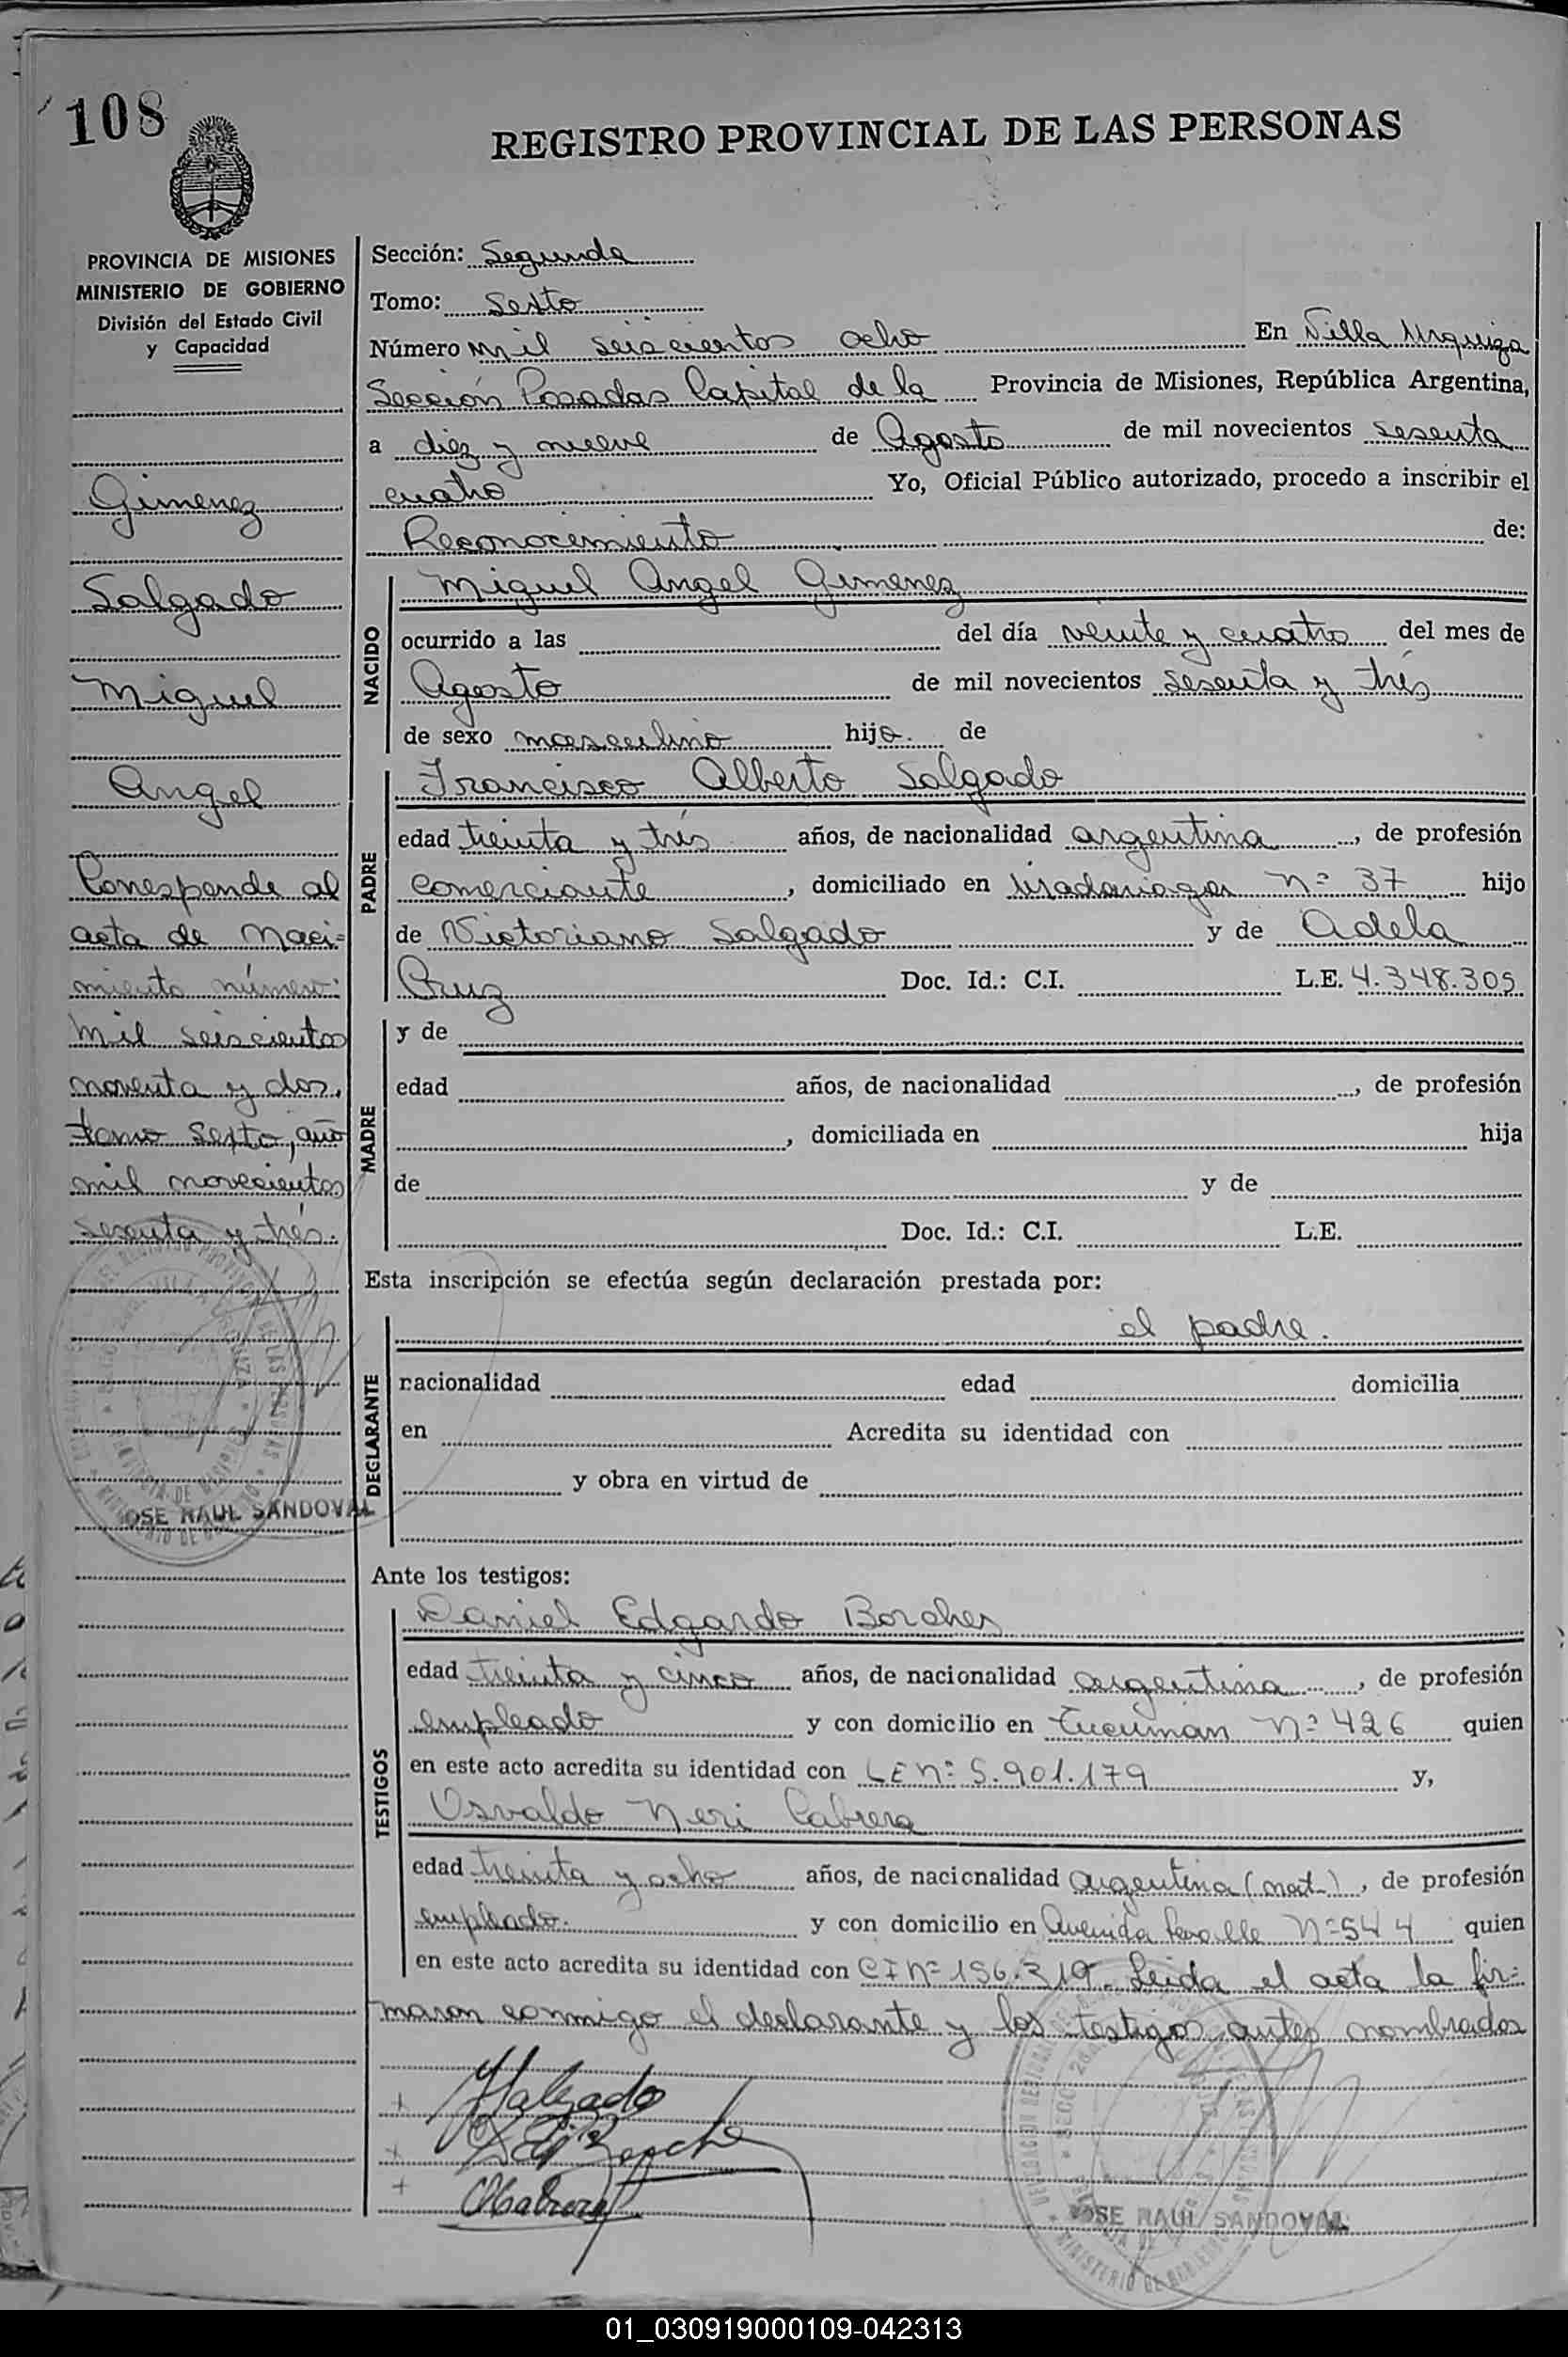 108
REGISTRO PROVINCIAL DE LAS PERSONAS
PROVINCIA DE MISIONES
MINISTERIO DE GOBIERNO
División del Estado Civil
y Capacidad
Gimenez
Salgado
Miguel
Angel
Corresponde al
acta de Naci=
miento número:
mil seiscientos
noventa y dos,
tomo Sexto, año
mil novecientos
sesenta y trés.
JOSE RAUL SANDOVAL
Sección: Segunda
Tomo: Sexto
Número mil seiscientos ocho En Villa Urquiza
Sección Posadas Capital de la Provincia de Misiones, República Argentina,
a diez y nueve de Agosto de mil novecientos sesenta
cuatro Yo, Oficial Público autorizado, procedo a inscribir el
Reconocimiento de:
NACIDO
Miguel Angel Gimenez
ocurrido a las del día veinte y cuatro del mes de
Agosto de mil novecientos sesenta y trés
de sexo masculino hijo de
PADRE
Francisco Alberto Salgado
edad treinta y trés años, de nacionalidad argentina, de profesión
comerciante, domiciliado en nº 37 hijo
de Victoriano Salgado y de Adela
Cruz Doc. Id.: C.I. L.E. 4.348.309
MADRE
y de
edad años, de nacionalidad , de profesión
, domiciliada en hija
de y de
Doc. Id.: C.I. L.E.
Esta inscripción se efectúa según declaración prestada por:
DECLARANTE
el padre.
nacionalidad edad domicilia
en Acredita su identidad con
y obra en virtud de
Ante los testigos:
TESTIGOS
Daniel Edgardo Borches
edad treinta y cinco años, de nacionalidad argentina, de profesión
empleado y con domicilio en Tucumán nº 426 quien
en este acto acredita su identidad con LE nº 5.901.179 y,
Osvaldo Neri Cabrera
edad treinta y ocho años, de nacionalidad argentina (nat.), de profesión
empleado. y con domicilio en Avenida Nº 544 quien
en este acto acredita su identidad con CI nº 156.319. Leida el acta la fir=
maron conmigo el declarante y los testigos antes nombrados
Salgado
JOSE RAUL SANDOVAL
01_030919000109-042313